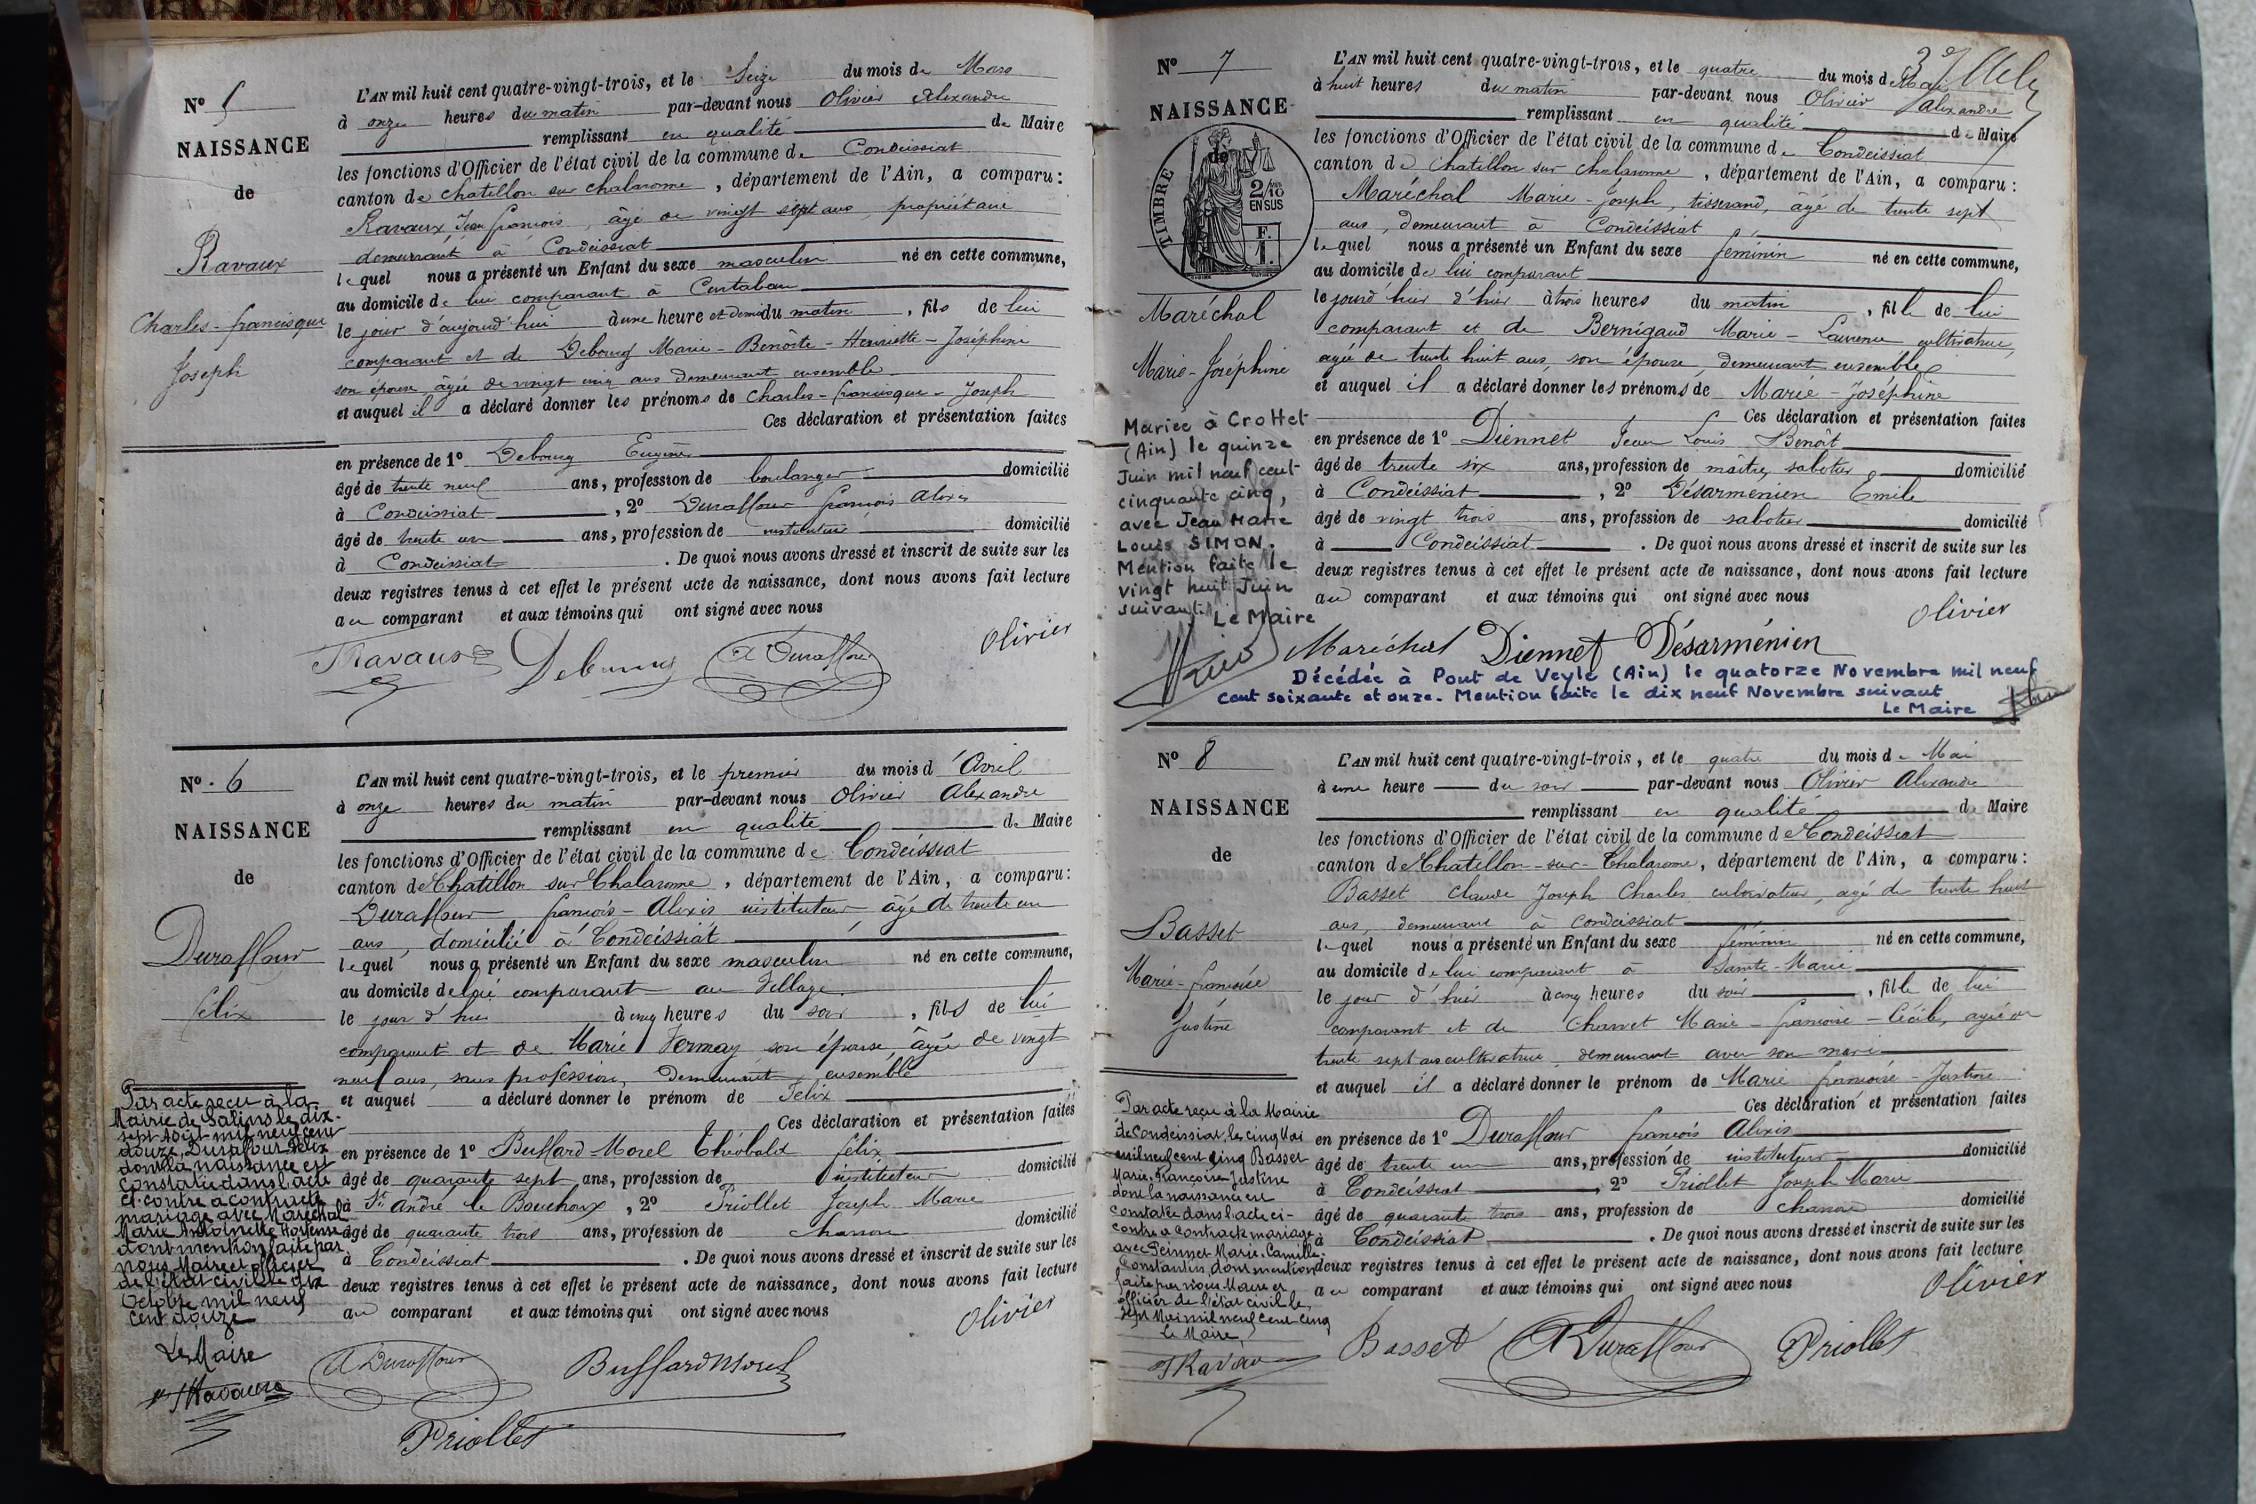 N° 5
NAISSANCE
de
Ravaux
Charles-francisque
Joseph
L'AN mil huit cent quatre-vingt-trois, et le Seize du mois de Mars
à onze heures du matin par-devant nous Olivier Alexandre
remplissant en qualité de Maire
les fonctions d'Officier de l'état civil de la commune de Condeissiat
canton de chatillon sur chalaronne, département de l'Ain, a comparu:
Ravaux Jean françois, âgé de vingt sept ans, propriétaire
demeurant à Condeissiat
lequel nous a présenté un Enfant du sexe masculin né en cette commune,
au domicile de lui comparant à Curtabau
le jour d'aujourd'hui à une heure et demi du matin, fils de lui
comparant et de Debourg Marie-Benoîte-Henriette-Joséphine
son épouse âgée de vingt cinq ans demeurant ensemble
et auquel il a déclaré donner les prénoms de Charles-francisque-Joseph
Ces déclaration et présentation faites
en présence de 1° Debourg Eugène
âgé de trente neuf ans, profession de boulanger domicilié
à Condeissiat, 2° Duraffour françois Alexis
âgé de trente un ans, profession de instituteur domicilié
à Condeissiat. De quoi nous avons dressé et inscrit de suite sur les
deux registres tenus à cet effet le présent acte de naissance, dont nous avons fait lecture
au comparant et aux témoins qui ont signé avec nous
Olivier
Ravaux Debourg A Duraffour
N° 6
NAISSANCE
de
Duraffour
Félix
L'AN mil huit cent quatre-vingt-trois, et le premier du mois d'Avril
à onze heures du matin par-devant nous Olivier Alexandre
remplissant en qualité de Maire
les fonctions d'Officier de l'état civil de la commune de Condeissiat
canton de Chatillon sur Chalaronne, département de l'Ain, a comparu:
Duraffour françois-Alexis instituteur âgé de trente un
ans, domicilié à Condeissiat
lequel nous a présenté un Enfant du sexe masculin né en cette commune,
au domicile de lui comparant au Village
le jour d'hier à cinq heures du soir, fils de lui
comparant et de Marie Vermay son épouse, âgée de vingt
neuf ans, sans profession, demeurant ensemble
et auquel a déclaré donner le prénom de Félix
Ces déclaration et présentation faites
en présence de 1° Buffard Morel Théobald félix
âgé de quarante sept ans, profession de instituteur domicilié
à St. andré le Bouchoux, 2° Priollet Joseph Marie
âgé de quarante trois ans, profession de charron domicilié
à Condeissiat. De quoi nous avons dressé et inscrit de suite sur les
deux registres tenus à cet effet le présent acte de naissance, dont nous avons fait lecture
au comparant et aux témoins qui ont signé avec nous
Olivier
Par acte reçu à la
Mairie de Salins le dix-
sept Août mil neuf cent
douze, Duraffour Félix
dont la naissance est
constatée dans l'acte
ci-contre a contracté
mariage avec Maréchal
Marie Antoinette Hortense
dont mention faite par
nous Maire et officier
de l'état civil le dix
Octobre mil neuf
cent douze
Le Maire
Ravaux
A Duraffour Buffard Morel
Priollet
N° 7
NAISSANCE
de
TIMBRE
2/10
EN SUS
F.
1.
Maréchal
Marie-Joséphine
L'AN mil huit cent quatre-vingt-trois, et le quatre du mois de Mai
à huit heures du matin par-devant nous Olivier Alexandre
remplissant en qualité de Maire
les fonctions d'Officier de l'état civil de la commune de Condeissiat
canton de chatillon sur chalaronne, département de l'Ain, a comparu:
Maréchal Marie-Joseph, tisserand, âgé de trente sept
ans, demeurant à Condeissiat
lequel nous a présenté un Enfant du sexe féminin né en cette commune,
au domicile de lui comparant
le jourd'hier d'hier à trois heures du matin, fille de lui
comparant et de Bernigaud Marie-Laurence cultivatrice,
agée de trente huit ans, son épouse, demeurant ensemble
et auquel il a déclaré donner les prénoms de Marie-Joséphine
Ces déclaration et présentation faites
en présence de 1° Diennet Jean Louis Benoît
âgé de trente six ans, profession de maître sabotier domicilié
à Condeissiat, 2° Désarménien Emile
âgé de vingt trois ans, profession de sabotier domicilié
à Condeissiat. De quoi nous avons dressé et inscrit de suite sur les
deux registres tenus à cet effet le présent acte de naissance, dont nous avons fait lecture
au comparant et aux témoins qui ont signé avec nous
Olivier
Mariée à Crottet
(Ain) le quinze
Juin mil neuf cent
cinquante cinq,
avec Jean Marie
Louis SIMON.
Mention faite le
vingt huit Juin
suivant. Le Maire
Maréchal Diennet Désarménien
Décédée à Pont de Veyle (Ain) le quatorze Novembre mil neuf
cent soixante et onze. Mention faite le dix neuf Novembre suivant
Le Maire
N° 8
NAISSANCE
de
Basset
Marie-françoise
Justine
L'AN mil huit cent quatre-vingt-trois, et le quatre du mois de Mai
à une heure du soir par-devant nous Olivier Alexandre
remplissant en qualité de Maire
les fonctions d'Officier de l'état civil de la commune de Condeissiat
canton de Chatillon-sur-Chalaronne, département de l'Ain, a comparu:
Basset Claude Joseph Charles cultivateur, agé de trente huit
ans, demeurant à Condeissiat
lequel nous a présenté un Enfant du sexe féminin né en cette commune,
au domicile de lui comparant à Sainte-Marie
le jour d'hier à cinq heures du soir, fille de lui
comparant et de Charvet Marie-françoise-Cécile, agée de
trente sept ans cultivatrice demeurant avec son mari
et auquel il a déclaré donner le prénom de Marie françoise-Justine
Ces déclaration et présentation faites
en présence de 1° Duraffour françois Alexis
âgé de trente un ans, profession de instituteur domicilié
à Condeissiat, 2° Priollet Joseph Marie
âgé de quarante trois ans, profession de charron domicilié
à Condeissiat. De quoi nous avons dressé et inscrit de suite sur les
deux registres tenus à cet effet le présent acte de naissance, dont nous avons fait lecture
au comparant et aux témoins qui ont signé avec nous
Olivier
Par acte reçu à la Mairie
de Condeissiat, le cinq Mai
mil neuf cent cinq Basset
Marie, Françoise Justine
dont la naissance est
constatée dans l'acte ci-
contre a contracté mariage
avec Peinnet Marie Camille
Constantin, dont mention
faite par nous Maire et
officier de l'état civil le
sept Mai mil neuf cent cinq
Le Maire,
Ravaux
Basset A Duraffour Priollet